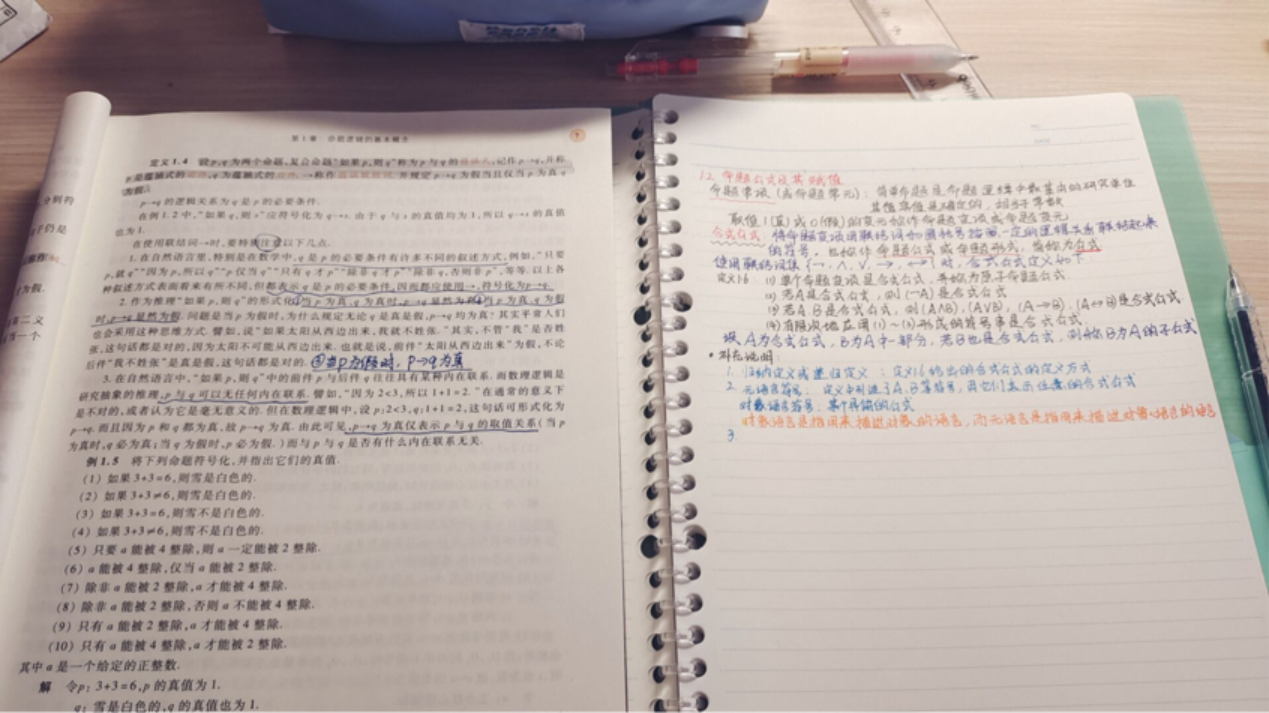 第1章 命题逻辑的基本概念
9
定义1.4 设p,q为两个命题,复合命题"如果p,则q"称为p与q的蕴涵式,记作p→q,并称
p是蕴涵式的前件,q为蕴涵式的后件,→称作蕴涵联结词.并规定p→q为假当且仅当p为真q
为假.
p→q的逻辑关系为q是p的必要条件.
在例1.2中,"如果q,则s"应符号化为q→s.由于q与s的真值均为1,所以q→s的真值
也为1.
在使用联结词→时,要特别注意以下几点.
1.在自然语言里,特别是在数学中,q是p的必要条件有许多不同的叙述方式,例如,"只要
p,就q""因为p,所以q""p仅当q""只有q才p""除非q才p""除非q,否则非p",等等.以上各
种叙述方式表面看来有所不同,但都表示q是p的必要条件,因而都应使用→,符号化为p→q.
2.作为推理"如果p,则q"的形式化,当p为真,q为真时,p→q显然为真,当p为真,q为假
时,p→q显然为假.问题是当p为假时,为什么规定无论q是真是假,p→q均为真?其实平常人们
也会采用这种思维方式.譬如,说"如果太阳从西边出来,我就不姓张."其实,不管"我"是否姓
张,这句话都是对的,因为太阳不可能从西边出来.也就是说,前件"太阳从西边出来"为假,不论
后件"我不姓张"是真是假,这句话都是对的. ③当p为假时,p→q为真
3.在自然语言中,"如果p,则q"中的前件p与后件q往往具有某种内在联系.而数理逻辑是
研究抽象的推理,p与q可以无任何内在联系.譬如,"因为2<3,所以1+1=2."在通常的意义下
是不对的,或者认为它是毫无意义的.但在数理逻辑中,设p:2<3,q:1+1=2,这句话可形式化为
p→q.而且因为p和q都为真,故p→q为真.由此可见,p→q为真仅表示p与q的取值关系(当p
为真时,q必为真;当q为假时,p必为假.)而与p与q是否有什么内在联系无关.
例1.5 将下列命题符号化,并指出它们的真值.
(1) 如果3+3=6,则雪是白色的.
(2) 如果3+3≠6,则雪是白色的.
(3) 如果3+3=6,则雪不是白色的.
(4) 如果3+3≠6,则雪不是白色的.
(5) 只要a能被4整除,则a一定能被2整除.
(6) a能被4整除,仅当a能被2整除.
(7) 除非a能被2整除,a才能被4整除.
(8) 除非a能被2整除,否则a不能被4整除.
(9) 只有a能被2整除,a才能被4整除.
(10) 只有a能被4整除,a才能被2整除.
其中a是一个给定的正整数.
解 令p:3+3=6,p的真值为1.
q:雪是白色的,q的真值也为1.
1.2 命题公式及其赋值
命题常项(或命题常元):简单命题是命题逻辑中最基本的研究单位
其真值是确定的,相当于常数
取值1(真)或0(假)的变元称作命题变项或命题变元
合式公式 将命题变项用联结词和圆括号按照一定的逻辑关系联结起来
的符号,也称作命题公式或命题形式,简称为公式
使用联结词集{¬,∧,∨,→,↔}时,合式公式定义如下
定义1.6 (1) 单个命题变项是合式公式,并称为原子命题公式
(2) 若A是合式公式,则(¬A)是合式公式
(3) 若A,B是合式公式,则(A∧B),(A∨B),(A→B),(A↔B)是合式公式
(4) 有限次地应用(1)~(3)形成的符号串是合式公式
设A为合式公式,B为A中一部分,若B也是合式公式,则称B为A的子公式
• 补充说明:
1. 归纳定义或递归定义:定义1.6给出的合式公式的定义方式
2. 元语言符号:定义中引进了A,B等符号,用它们表示任意的合式公式
对象语言符号:某个具体的公式
对象语言是指用来描述对象的语言,而元语言是指用来描述对象语言的语言
3.